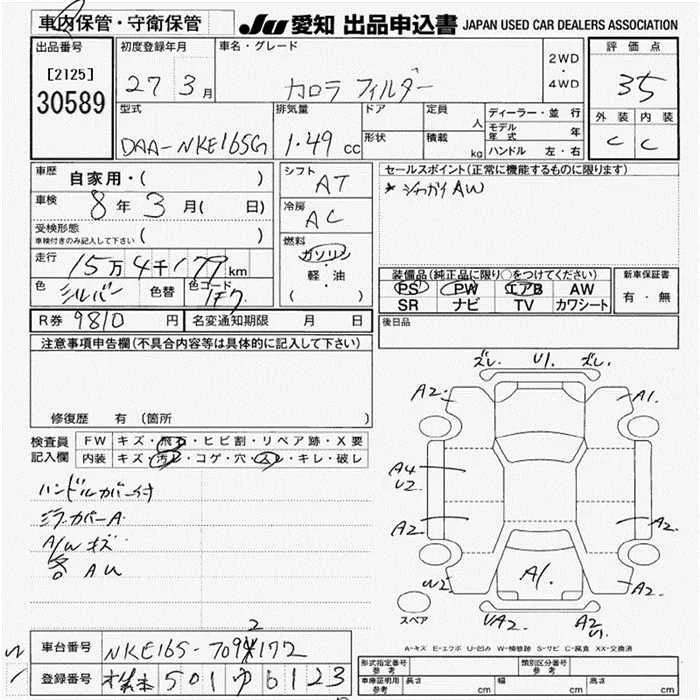 車内保管・守衛保管
JU 愛知 出品申込書 JAPAN USED CAR DEALERS ASSOCIATION
出品番号
[2125]
30589
初度登録年月
27 3月
車名・グレード
カロラ フィルダー
2WD
・
4WD
評価点
35
外装 内装
C C
型式
DAA-NKE165G
排気量
1.49 cc
ドア
形状
定員
人
積載
kg
ディーラー・並 行
モデル年式 年
ハンドル 左・右
車歴
自家用・( )
車検
8年3月( 日)
受検形態
車検付きのみ記入して下さい ( )
走行
15万4千179km
色 シルバー 色替 色コード 1F7
シフト
AT
冷房
AC
燃料
ガソリン
軽・油
( )
セールスポイント(正常に機能するものに限ります)
装備品(純正品に限り○をつけてください)
PS PW エアB AW
SR ナビ TV カワシート
新車保証書
有・無
R券 9810 円 名変通知期限 月 日
後日品
注意事項申告欄(不具合内容等は具体的に記入して下さい)
修復歴 有 (箇所 )
検査員
記入欄
FW キズ・飛石・ヒビ割・リペア跡・X要
内装 キズ・汚レ・コゲ・穴・スレ・キレ・破レ
ハンドルカバー付
ミラーカバーA
A/W キズ
各 AU
ズレ U1 ズレ
A2 A1
A4
U2
A2 A2
W2 A1 A2
UA2 A2
U1
スペア
A-キズ E-エクボ U-凹み W-補修跡 S-サビ C-腐食 XX-交換済
車台番号 NKE165-7092172
登録番号 501 ゆ 6123
形式指定番号
参考
類別区分番号
参考
車庫証明用
参考
長さ cm 幅 cm 高さ cm